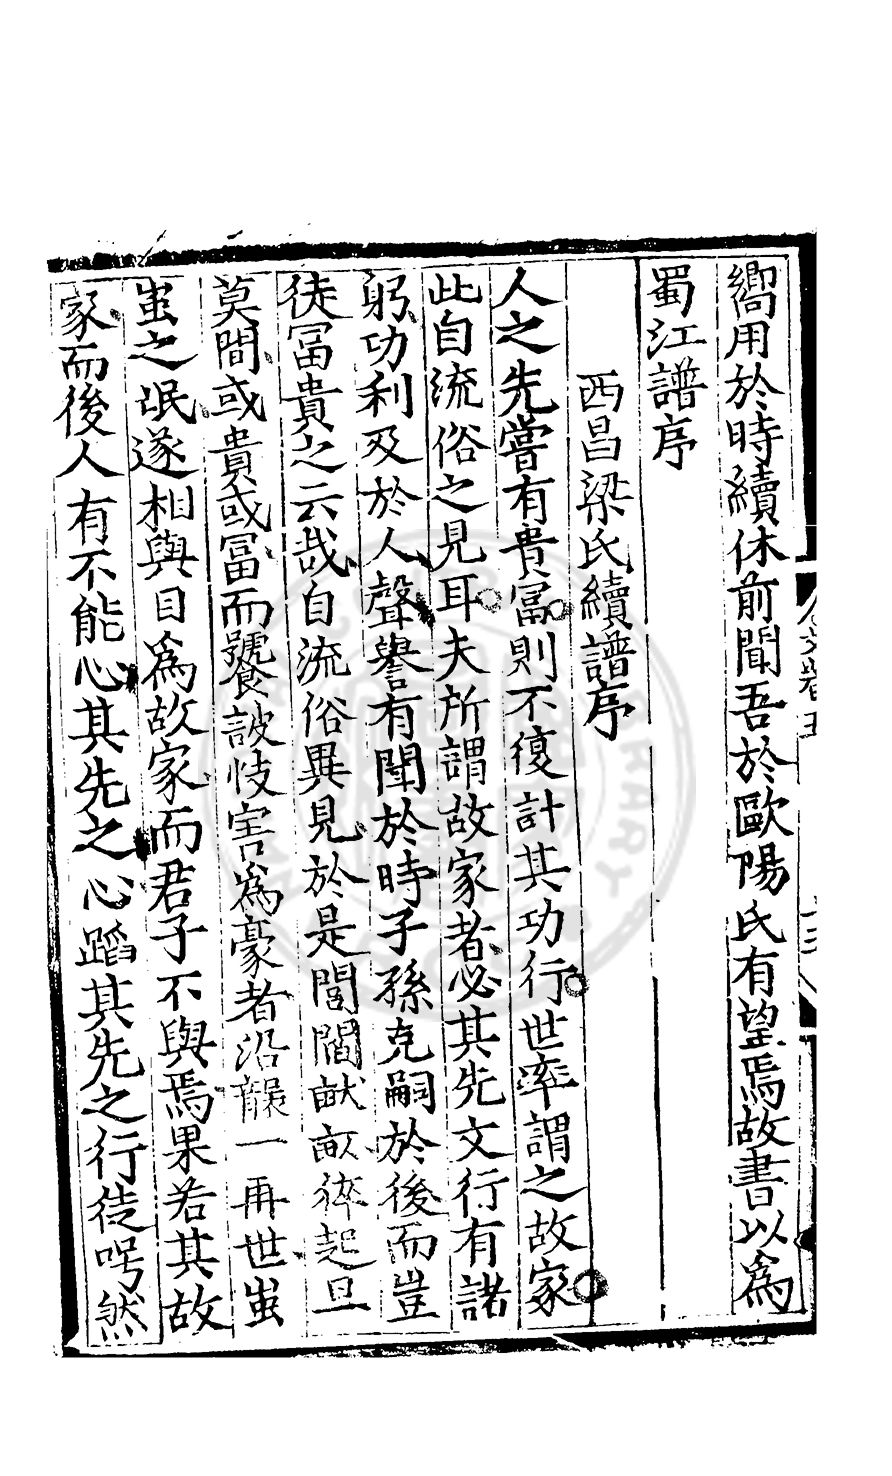 嚮用於時續休前聞吾於歐陽氏有望焉故書以為
蜀江譜序
西昌梁氏續譜序
人之先嘗有貴冨則不復計其功行世率謂之故家
此自流俗之見耳夫所謂故家者必其先文行有諸
躬功利及於人聲譽有聞於時子孫克嗣於後而豈
徒冨貴之云哉自流俗異見於是閭閻畎畝猝起旦
莫間或貴或冨而饕詖忮害為豪者沿襲一再世蚩
蚩之氓遂相與目為故家而君子不與焉果若其故
家而後人有不能心其先之心蹈其先之行徒呺然